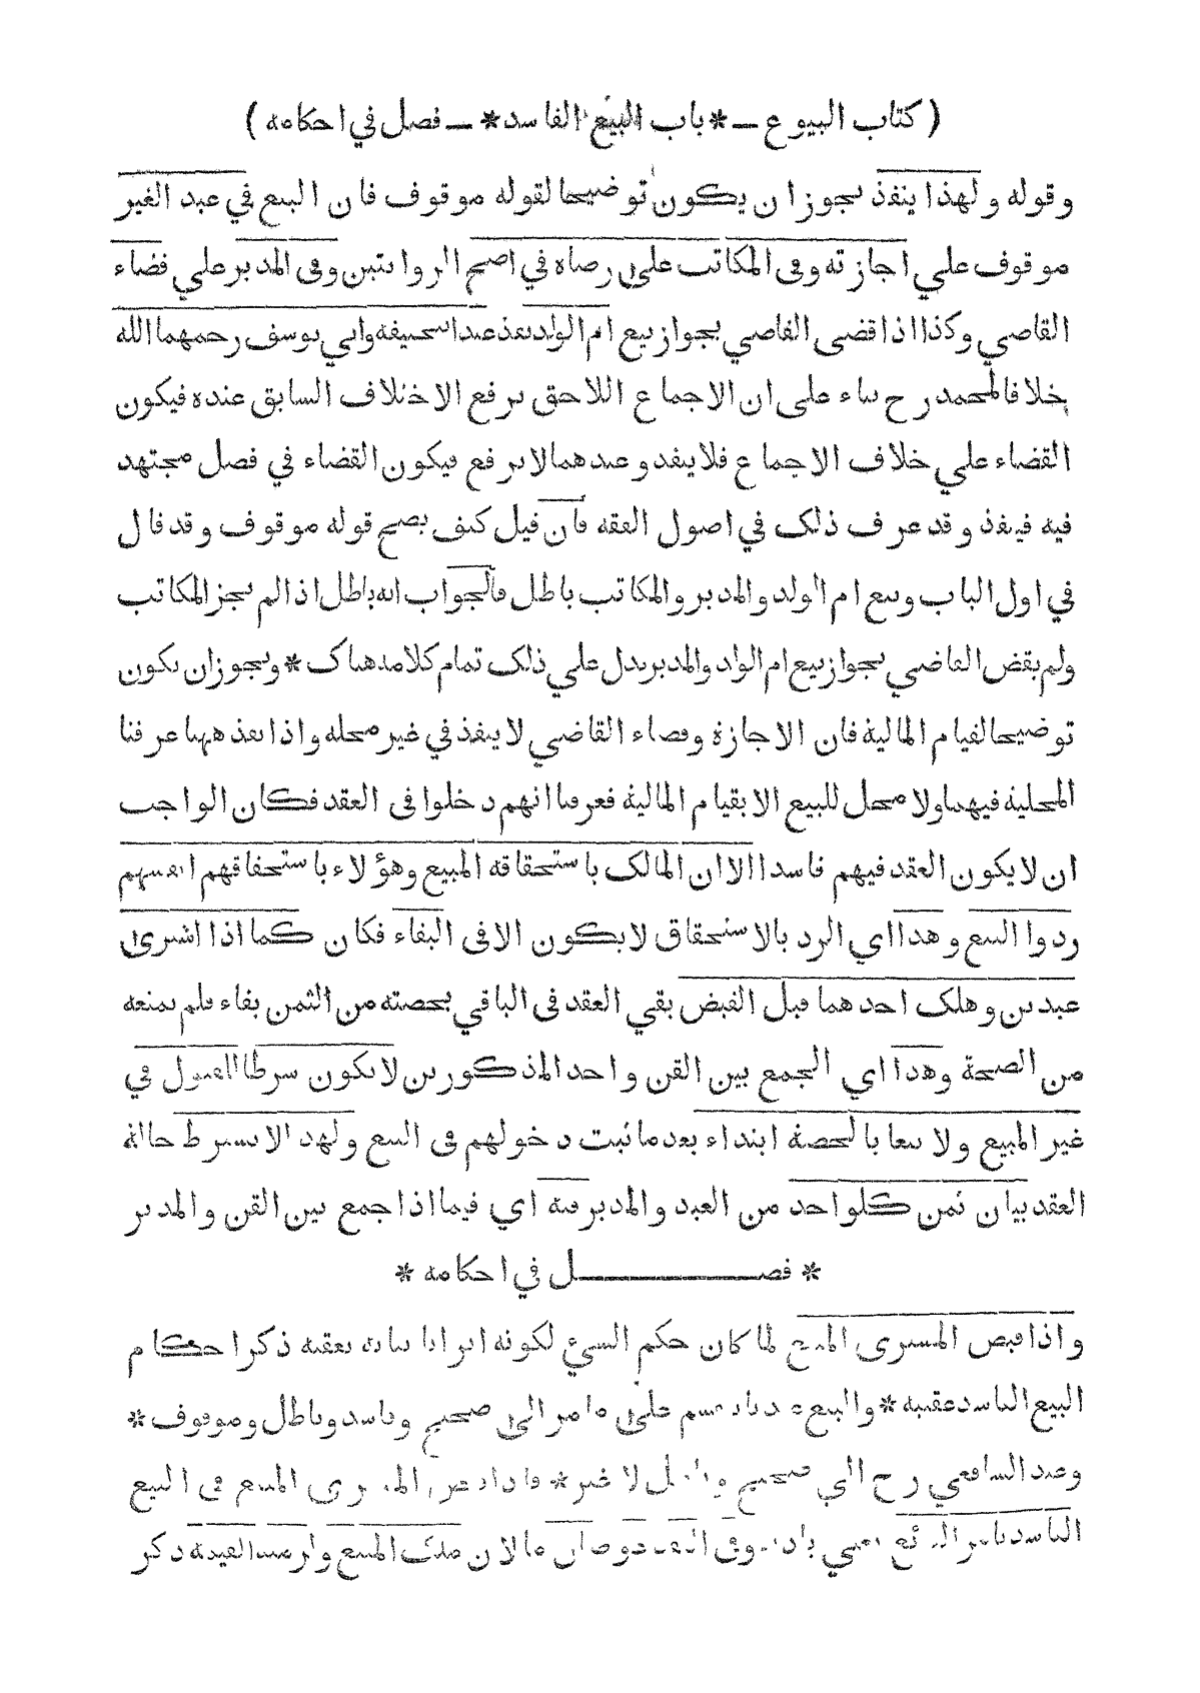 ( كتاب البيوع — * باب البيع الفاسد * — فصل في احكامه )
وقوله ولهذا ينفذ يجوز ان يكون توضيحا لقوله موقوف فان البيع في عبد الغير
موقوف علي اجازته وفي المكاتب علي رضاه في اصح الروايتين وفي المدبر علي قضاء
القاضي وكذا اذا قضى القاضي بجواز بيع ام الولد نفذ عند ابيحنيفة وابي يوسف رحمهما الله
خلافا لمحمد رح بناء علي ان الاجماع اللاحق يرفع الاختلاف السابق عنده فيكون
القضاء علي خلاف الاجماع فلا ينفذ وعندهما لا يرفع فيكون القضاء في فصل مجتهد
فيه فينفذ وقد عرف ذلك في اصول الفقه فان قيل كيف يصح قوله موقوف وقد قال
في اول الباب وبيع ام الولد والمدبر والمكاتب باطل فالجواب انه باطل اذا لم يجز المكاتب
ولم يقض القاضي بجواز بيع ام الولد والمدبر يدل علي ذلك تمام كلامه هناك * ويجوز ان يكون
توضيحا لقيام المالية فان الاجازة وقضاء القاضي لا ينفذ في غير محله واذا نفذ ههنا عرفنا
المحلية فيهما ولا محل للبيع الا بقيام المالية فعرفنا انهم دخلوا في العقد فكان الواجب
ان لا يكون العقد فيهم فاسدا الا ان المالك باستحقاقه المبيع وهؤلاء باستحقاقهم انفسهم
ردوا البيع وهذا اي الرد بالاستحقاق لا يكون الا في البقاء فكان كما اذا اشترى
عبدين وهلك احدهما قبل القبض بقي العقد في الباقي بحصته من الثمن بقاء فلم يمنعه
من الصحة وهذا اي الجمع بين القن واحد المذكورين لا يكون شرطا القبول في
غير المبيع ولا بيعا بالحصة ابتداء بعد ما ثبت دخولهم في البيع ولهذا لا يشترط حالة
العقد بيان ثمن كل واحد من العبد والمدبر فيه اي فيما اذا جمع بين القن والمدبر
* فصـــــل في احكامه *
واذا قبض المشتري المبيع لما كان حكم الشيء لكونه اثرا يعقبه ذكر احكام
البيع الفاسد عقيبه * والبيع علي ما مر الى صحيح وفاسد وباطل وموقوف *
وعند الشافعي رح الي صحيح وباطل لا غير * فاذا قبض المشتري المبيع في البيع
الفاسد بامر البائع وفي العقد عوضان مالان ملك المبيع ولزمته القيمة ذكر